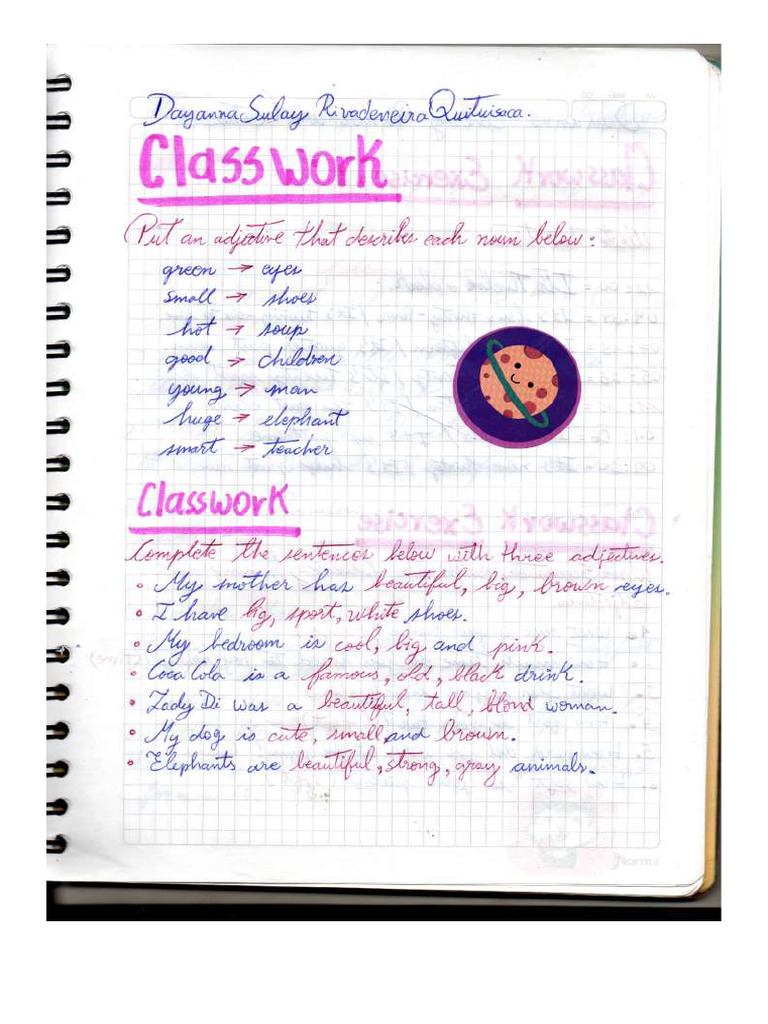 Dayanna Sulay Rivadeneira Quituisaca.
Classwork
Put an adjective that describes each noun below:
green → eyes
small → shoes
hot → soup
good → children
young → man
huge → elephant
smart → teacher
Classwork
Complete the sentences below with three adjectives.
• My mother has beautiful, big, brown eyes.
• I have big, sport, white shoes.
• My bedroom is cool, big and pink.
• Coca Cola is a famous, old, black drink.
• Lady Di was a beautiful, tall, blond woman.
• My dog is cute, small, and brown.
• Elephants are beautiful, strong, gray animals.
Norma